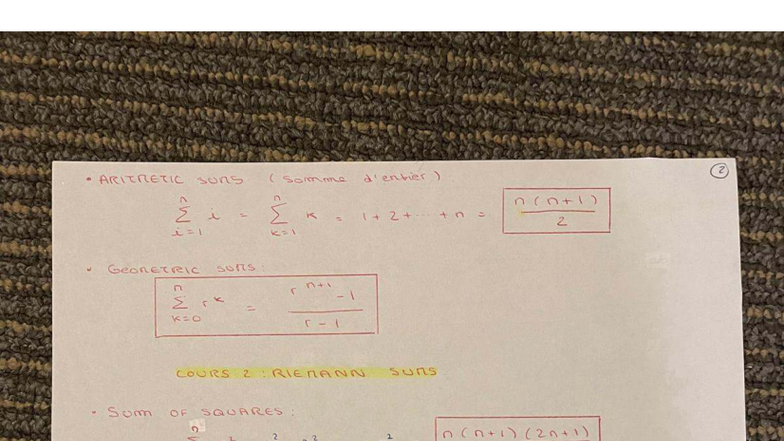 2
• ARITMETIC SUMS ( somme d'entier )
n n
∑ i = ∑ k = 1 + 2 + ... + n = n(n+1)/2
i=1 k=1
• GEOMETRIC SUMS :
n
∑ r^k = (r^(n+1) - 1)/(r - 1)
k=0
COURS 2 : RIEMANN SUMS
• SUM OF SQUARES :
n
∑ n(n+1)(2n+1)